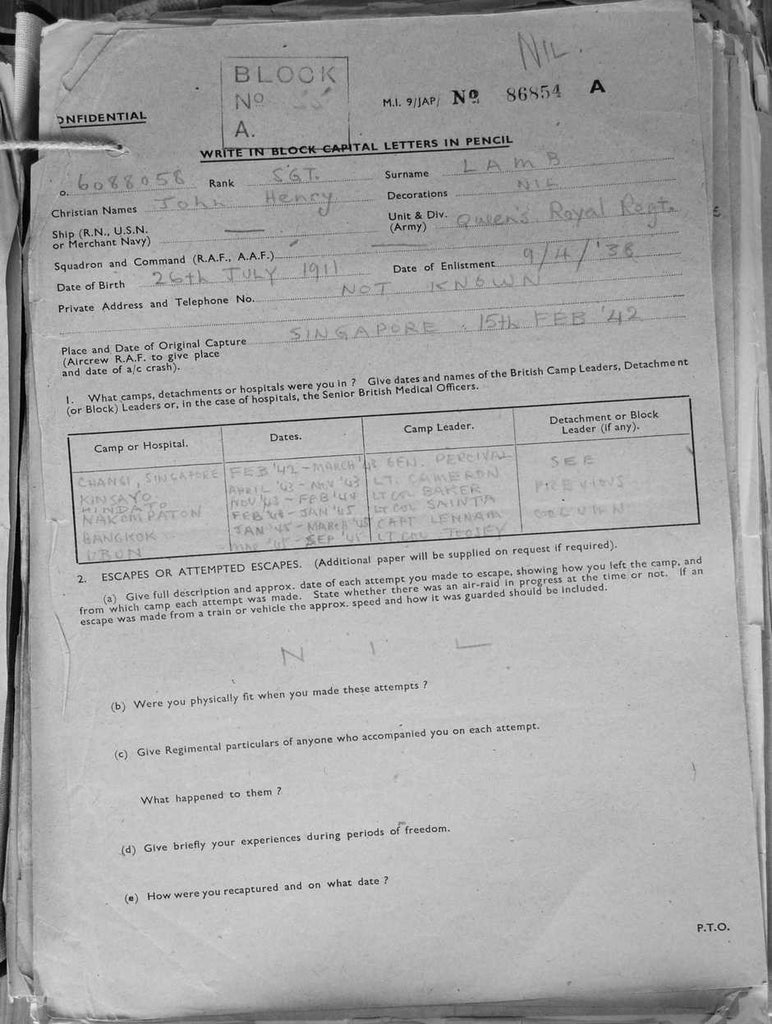 NIL.
BLOCK
No
A.
M.I. 9/JAP/ No 86854 A
ONFIDENTIAL
WRITE IN BLOCK CAPITAL LETTERS IN PENCIL
o. 6088058 Rank SGT. Surname LAMB
Christian Names John Henry Decorations NIL
Ship (R.N., U.S.N. or Merchant Navy) — Unit & Div. (Army) Queen's Royal Regt.
Squadron and Command (R.A.F., A.A.F.) —
Date of Birth 26th JULY 1911 Date of Enlistment 9/4/'38
Private Address and Telephone No. NOT KNOWN
Place and Date of Original Capture SINGAPORE. 15th FEB '42
(Aircrew R.A.F. to give place
and date of a/c crash).
1. What camps, detachments or hospitals were you in ? Give dates and names of the British Camp Leaders, Detachment
(or Block) Leaders or, in the case of hospitals, the Senior British Medical Officers.
Camp or Hospital. Dates. Camp Leader. Detachment or Block Leader (if any).
CHANGI, SINGAPORE FEB '42 - MARCH '43 GEN. PERCIVAL SEE
KINSAYO APRIL '43 - NOV '43 LT. CAMERON PREVIOUS
HINDATO NOV '43 - FEB '44 LT COL BAKER COLUMN
NAKOMPATON FEB '44 - JAN '45 LT COL SAINTA
BANGKOK JAN '45 - MARCH '45 CAPT LENNAM
UBON MAR '45 - SEP '45 LT COL TOOSEY
2. ESCAPES OR ATTEMPTED ESCAPES. (Additional paper will be supplied on request if required).
(a) Give full description and approx. date of each attempt you made to escape, showing how you left the camp, and
from which camp each attempt was made. State whether there was an air-raid in progress at the time or not. If an
escape was made from a train or vehicle the approx. speed and how it was guarded should be included.
N I L
(b) Were you physically fit when you made these attempts ?
(c) Give Regimental particulars of anyone who accompanied you on each attempt.
What happened to them ?
(d) Give briefly your experiences during periods of freedom.
(e) How were you recaptured and on what date ?
P.T.O.